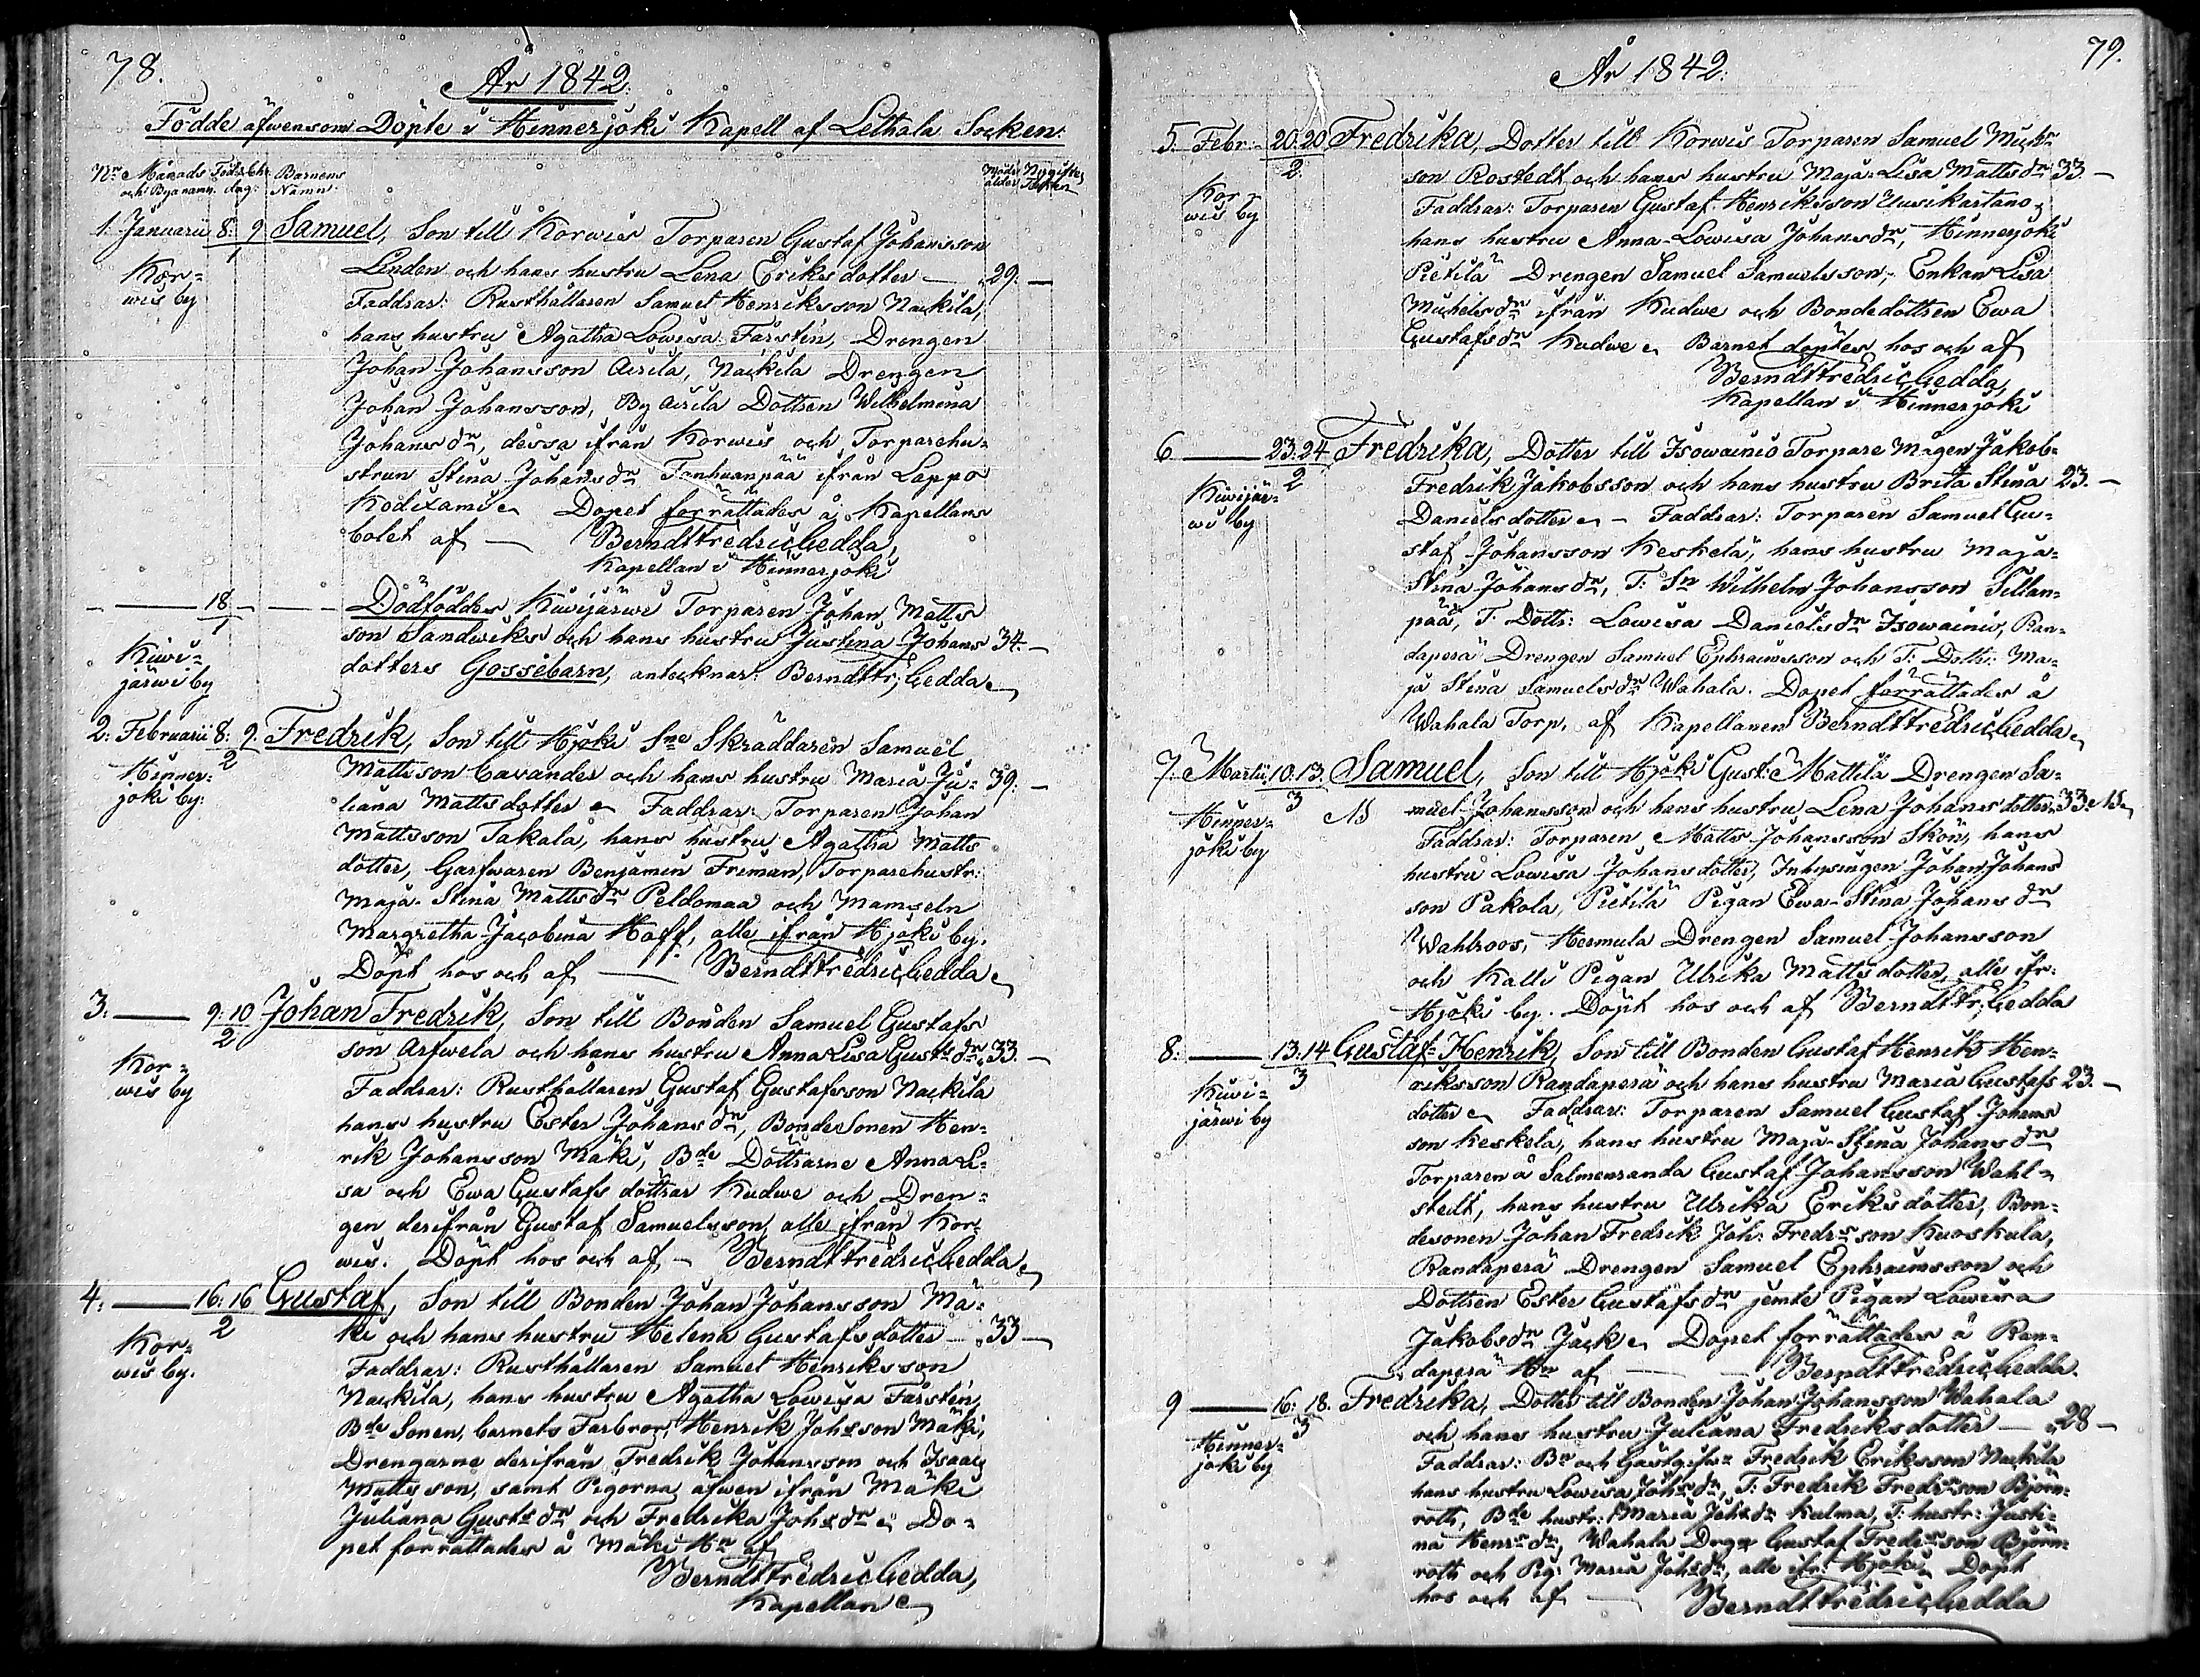 78.
År 1842.
Födde äfwensom Döpte i Hinnerjoki Kapell af Lethala Socken.
Nr Månads och Byanamn. Föds. Chr. dag: Barnens Namn. Modrs ålder
1. Januarii 8. 9 Samuel, Son till Korwis Torparen Gustaf Johansson
1
Korwis by
Linden och hans hustru Lena Eriks dotter — 29. —
Faddrar: Rusthållaren Samuel Henriksson Nackila,
hans hustru Agatha Lowisa Farstén, Drengen
Johan Johansson Airila, Nackila Drengen
Johan Johansson, By Airila Dottren Wilhelmina
Johans dr, dessa ifrån Korwis och Torparehu-
strun Stina Johans dr Tanhuanpää ifrån Lappo
Kodixami. Dopet förrättades å Kapellans
bolet af — Berndt Fredric Gedda,
Kapellan i Hinnerjoki
— 18 — — Dödföddes Kiwijärwi Torparen Johan Matts
1
Kiwi-
järwi by
son Sandwiks och hans hustru Justina Johans 34. —
dotters Gossebarn, antecknar: Berndt Fr: Gedda
2. Februarii 8. 9. Fredrik, Son till Hjoki Sne Skräddaren Samuel
2
Hinner-
joki by.
Mattsson Cavander och hans hustru Maria Ju- 39. —
liana Mattsdotter Faddrar: Torparen Johan
Mattsson Takala, hans hustru Agatha Matts
dotter, Garfwaren Benjamin Friman, Torparehustr:
Maja-Stina Matts dr Peldomaa och Mamseln
Margretha Jacobina Hoff, alle ifrån Hjoki by.
Döpt hos och af — Berndt Fredric Gedda
3. — 9. 10 Johan Fredrik, Son till Bonden Samuel Gustafs
2
Kor-
wis by
son Arfwela och hans hustru Anna Lisa Gusts dr 33. —
Faddrar: Rusthållaren Gustaf Gustafsson Nackila
hans hustru Ester Johans dr, Bonde Sonen Hen-
rik Johansson Mäki, Bde Döttrarne Anna Li-
sa och Ewa Gustafs döttrar Kudwe och Dren-
gen derifrån Gustaf Samuelsson, alle ifrån Kor-
wis. Döpt hos och af — Berndt Fredric Gedda
4. — 16. 16 Gustaf, Son till Bonden Johan Johansson Mä-
2
Kor-
wis by.
ki och hans hustru Helena Gustafsdotter — 33 —
Faddrar: Rusthållaren Samuel Henriksson
Nackila, hans hustru Agatha Lowisa Farstén,
Bde Sonen, barnets Farbror, Henrik Johsson Mäki,
Drengarne derifrån Fredrik Johansson och Isaac
Mattsson, samt Pigorna äfwen ifrån Mäki
Juliana Gusts dr och Fredrika Johs dr. Do-
pet förrättades å Mäki Hn af
Berndt Fredric Gedda,
Kapellan
79.
År 1842.
5. Febr. 20. 20 Fredrika, Dotter till Korwis Torparen Samuel Michs
2
Kor-
wis by
son Rostedt och hans hustru Maja-Lisa Matts dr 33. —
Faddrar: Torparen Gustaf Henriksson Uusikartano,
hans hustru Anna-Lowisa Johans dr, Hinnerjoki
Pietilä Drengen Samuel Samuelsson, Enkan Lisa
Michels dr ifrån Kudwe och Bondedottren Ewa
Gustafs dr Kudwe. Barnet döptes hos och af
Berndt Fredric Gedda,
Kapellan i Hinnerjoki
6 — 23. 24 Fredrika, Dotter till Isowainio Torpare Mågen Jakob-
2
Kiwijär-
wi by
Fredrik Jakobsson och hans hustru Brita Stina 23. —
Danielsdotter — Faddrar: Torparen Samuel Gu-
staf Johansson Keskela, hans hustru Maja-
Stina Johans dr, T: Sn Wilhelm Johansson Sillan-
pää, T. Dottr: Lowisa Daniels dr Isowainio, Ran-
daperä Drengen Samuel Ephraimsson och T: Dottr: Ma-
ja Stina Samuels dr Wahala. Dopet förrättades å
Wahala Torp, af Kapellanen Berndt Fredric Gedda
7. Martii. 10. 13. Samuel, Son till Hjoki Gust: Mattila Drengen Sa-
3
Hinner-
joki by
muel Johansson och hans hustru Lena Johans dotter 33.
Faddrar: Torparen Matts Johansson Skön, hans
hustru Lowisa Johansdotter, Inhysingen Johan Johans
son Pakola, Pietilä Pigan Ewa-Stina Johans dr
Wahlroos, Hermula Drengen Samuel Johansson
och Kalli Pigan Ulrika Mattsdotter, alle ifr:
Hjoki by. Döpt hos och af Berndt Fr: Gedda
8. — 13. 14 Gustaf-Henrik, Son till Bonden Gustaf Henrik Hen-
3
Kiwi-
järwi by
riksson Randaperä och hans hustru Maria Gustafs 23. —
dotter Faddrar: Torparen Samuel Gustaf Johans
son Keskela, hans hustru Maja-Stina Johans dr
Torparen å Salmenranda Gustaf Johansson Wahl-
stedt, hans hustru Ulrika Eriksdotter, Bon-
desonen Johan Fredrik Joh: Fredrsson Kuoskula,
Randaperä Drengen Samuel Ephraimsson och
Dottren Ester Gustafs dr jemte Pigan Lowisa
Jakobs dr Jack. Dopet förrättades å Ran-
daperä Hn af — Berndt Fredric Gedda.
9 — 16. 18. Fredrika, Dotter till Bonden Johan Johansson Wahala
3
Hinner-
joki by
och hans hustru Juliana Fredriksdotter — 28 —
Faddrar: Bn och Gästgifvn Fredrik Eriksson Nackila
hans hustru Lowisa Johs dr, T: Fredrik Fredrsson Björn-
roth, Bde hustr: Maria Johs dr Kulma, T: hustr: Justi-
na Henrs dr, Wahala Drgn Gustaf Fredrsson Björn-
roth och Pig: Maria Johs dr, alle ifr: Hjoki. Döpt
hos och af — Berndt Fredric Gedda